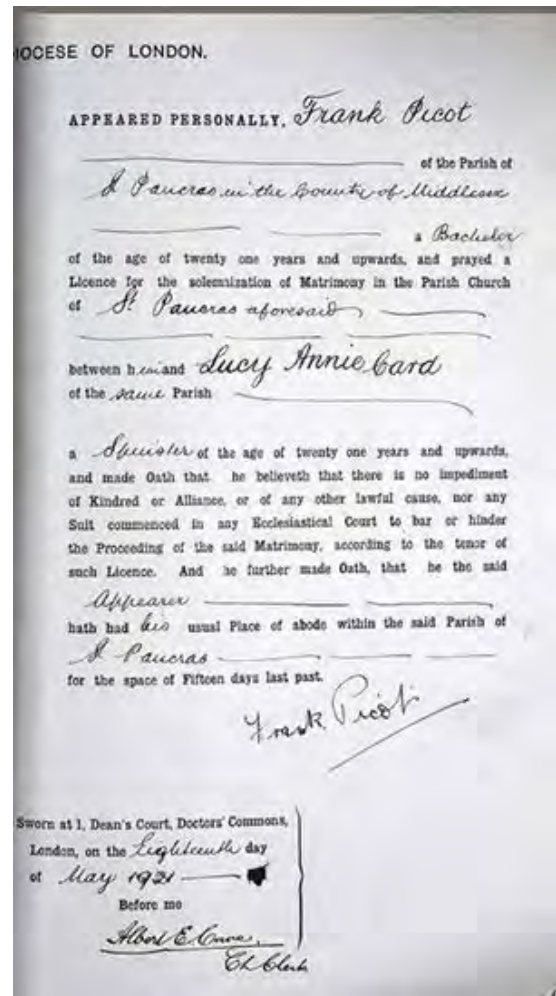 IOCESE OF LONDON.
APPEARED PERSONALLY, Frank Picot
of the Parish of
St Pancras in the County of Middlesex
a Bachelor
of the age of twenty one years and upwards, and prayed a
Licence for the solemnization of Matrimony in the Parish Church
of St Pancras aforesaid
between him and Lucy Annie Card
of the same Parish
a Spinster of the age of twenty one years and upwards,
and made Oath that he believeth that there is no impediment
of Kindred or Alliance, or of any other lawful cause, nor any
Suit commenced in any Ecclesiastical Court to bar or hinder
the Proceeding of the said Matrimony, according to the tenor of
such Licence. And he further made Oath, that he the said
Appearer
hath had his usual Place of abode within the said Parish of
St Pancras
for the space of Fifteen days last past.
Frank Picot
Sworn at 1, Dean's Court, Doctors' Commons,
London, on the Eighteenth day
of May 1921
Before me
Albert E.
Ch Clerk